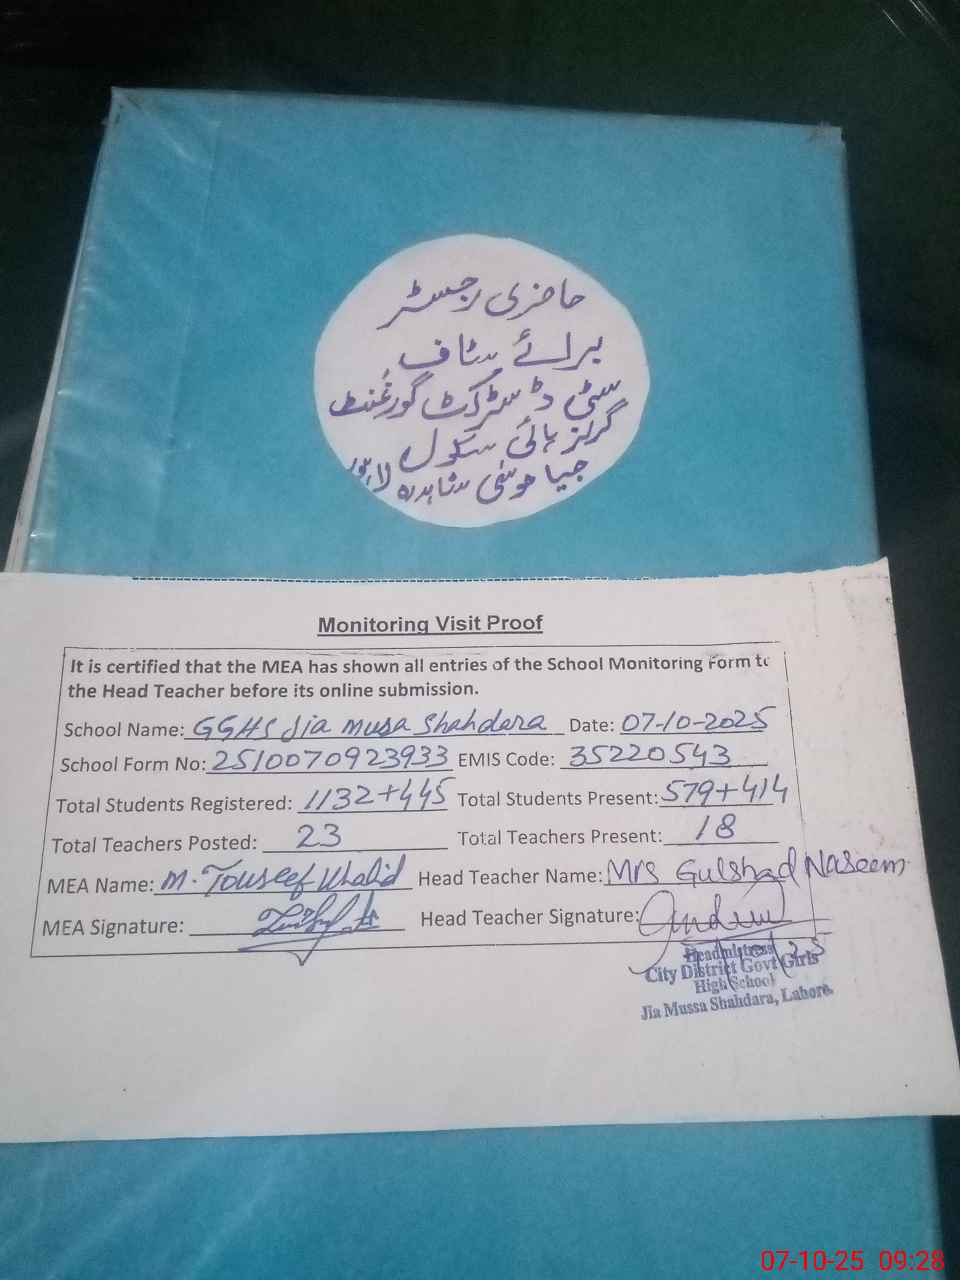 حاضری رجسٹر
برائے سٹاف
سٹی ڈسٹرکٹ گورنمنٹ
گرلز ہائی سکول
جیا موسٰی شاہدرہ لاہور
Monitoring Visit Proof
It is certified that the MEA has shown all entries of the School Monitoring Form to
the Head Teacher before its online submission.
School Name: GGHS Jia Musa Shahdara Date: 07-10-2025
School Form No: 2510070923933 EMIS Code: 35220543
Total Students Registered: 1132+445 Total Students Present: 579+414
Total Teachers Posted: 23 Total Teachers Present: 18
MEA Name: M. Touseef Khalid Head Teacher Name: Mrs Gulshad Naseem
MEA Signature: Head Teacher Signature:
Headmistress
City District Govt Girls
High School
Jia Mussa Shahdara, Lahore.
07-10-25 09:28